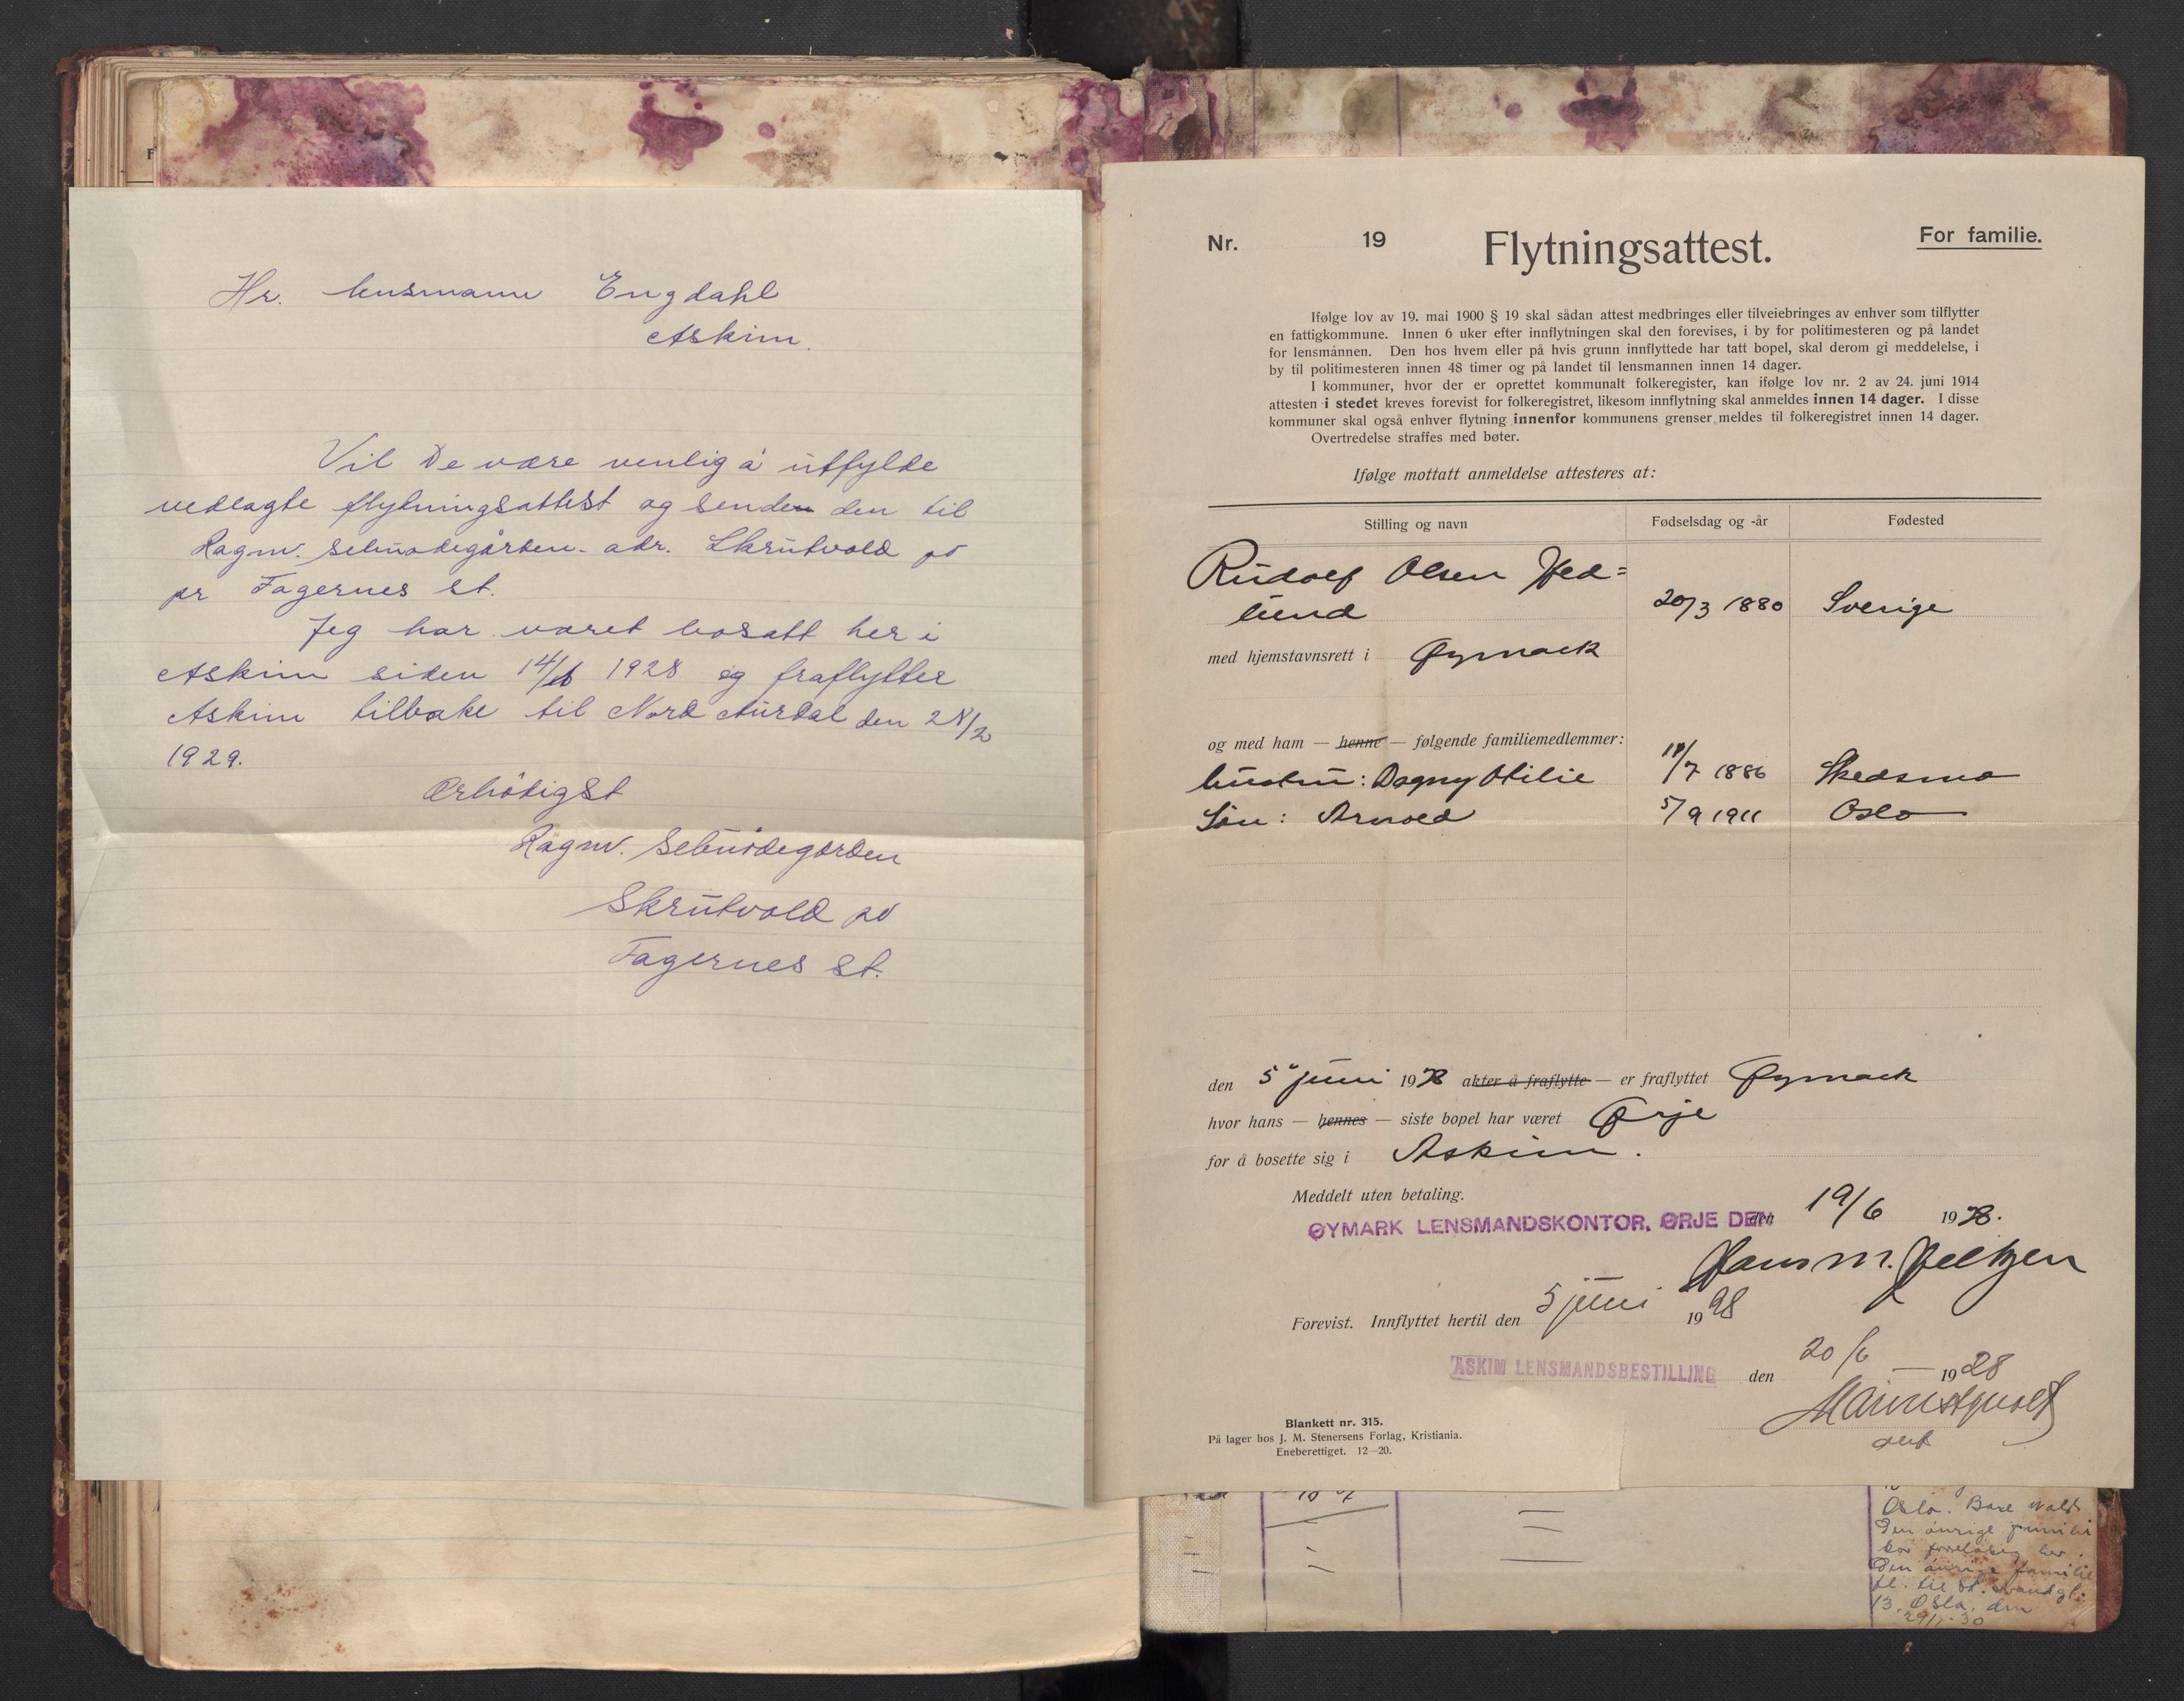 Hr. lensmann Engdahl
Askim.
Vil De være venlig å utfylde
vedlagte flytningsattest og senden den til
Ragnv. Selmodegården. adr. Skrutvold po
pr Fagernes st.
Jeg har været bosatt her i
Askim siden 14/ 1928 og fraflytter
Askim tilbake til Nord Aurdal den 28/2
1929.
Ærbødigst
Ragnv. Selmodegården
Skrutvold po
Fagernes st.
Nr. 19 Flytningsattest. For familie.
Ifølge lov av 19. mai 1900 § 19 skal sådan attest medbringes eller tilveiebringes av enhver som tilflytter
en fattigkommune. Innen 6 uker efter innflytningen skal den forevises, i by for politimesteren og på landet
for lensmannen. Den hos hvem eller på hvis grunn innflyttede har tatt bopel, skal derom gi meddelelse, i
by til politimesteren innen 48 timer og på landet til lensmannen innen 14 dager.
I kommuner, hvor der er oprettet kommunalt folkeregister, kan ifølge lov nr. 2 av 24. juni 1914
attesten i stedet kreves forevist for folkeregistret, likesom innflytning skal anmeldes innen 14 dager. I disse
kommuner skal også enhver flytning innenfor kommunens grenser meldes til folkeregistret innen 14 dager.
Overtredelse straffes med bøter.
Ifølge mottatt anmeldelse attesteres at:
Stilling og navn Fødselsdag og -år Fødested
Rudolf Olsen Hed=
lund 20/3 1880 Sverige
med hjemstavnsrett i Øymark
og med ham — henne — følgende familiemedlemmer:
hustru: Dagny Otilie 18/7 1886 Skedsmo
Søn: Arnold 5/9 1911 Oslo
den 5 juni 1928 akter å fraflytte — er fraflyttet Øymark
hvor hans — hennes — siste bopel har været Ørje
for å bosette sig i Askim.
Meddelt uten betaling.
ØYMARK LENSMANDSKONTOR, ØRJE DEN den 19/6 1928.
Hans M.
Forevist. Innflyttet hertil den 5 juni 1928
ASKIM LENSMANDSBESTILLING den 20/6 — 1928
Blankett nr. 315.
På lager hos J. M. Stenersens Forlag, Kristiania.
Eneberettiget. 12—20.
Oslo. Bare
Den øvrige familie
bor foreløbig her.
Den øvrige familie
fl. til
13. Oslo. den
29/1-30